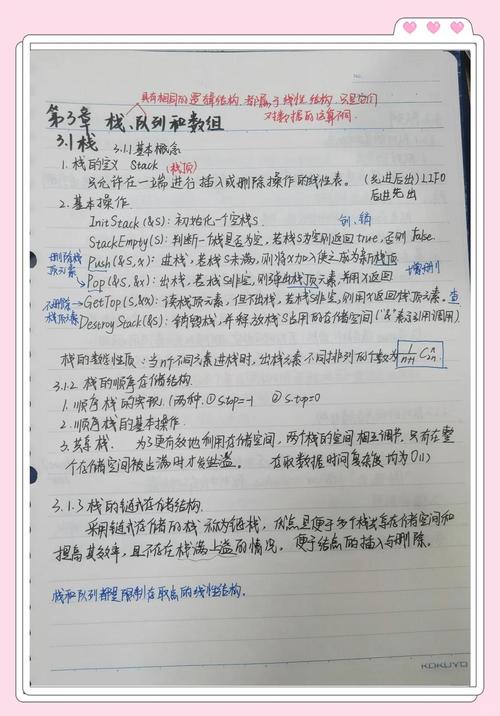 No.
具有相同的逻辑结构,都属于线性结构,只是它们
对数据的运算不同.
第3章 栈、队列和数组
3.1 栈 3.1.1 基本概念
1. 栈的定义 Stack (栈顶)
只允许在一端进行插入或删除操作的线性表。(先进后出) LIFO
后进先出
2. 基本操作.
InitStack(&S): 初始化一个空栈S. 创、销
StackEmpty(S): 判断一个栈是否为空,若栈S为空则返回true,否则false.
Push(&S,x): 进栈,若栈S未满,则将x加入使之成为新栈顶
删除栈顶元素 Pop(&S,&x): 出栈,若栈S非空,则弹出栈顶元素,并用x返回 增、删
不删除栈顶元素 GetTop(S,&x): 读栈顶元素,但不出栈,若栈S非空,则用x返回栈顶元素. 查
DestroyStack(&S): 销毁栈,并释放栈S占用的存储空间("&"表示引用调用)
栈的数学性质: 当n个不同元素进栈时,出栈元素不同排列的个数为 1/(n+1) C_{2n}^{n}
3.1.2 栈的顺序存储结构.
1. 顺序栈的实现. (两种. ① S.top=-1 ② S.top=0
2. 顺序栈的基本操作.
3. 共享栈. 为了更有效地利用存储空间,两个栈的空间相互调节,只有在整
个存储空间被占满时才发生上溢。 存取数据时间复杂度均为O(1)
3.1.3 栈的链式存储结构.
采用链式存储的栈称为链栈,优点是便于多个栈共享存储空间和
提高其效率,且不存在栈满上溢的情况。便于结点的插入与删除。
栈和队列都是限制存取点的线性结构.
KOKUYO